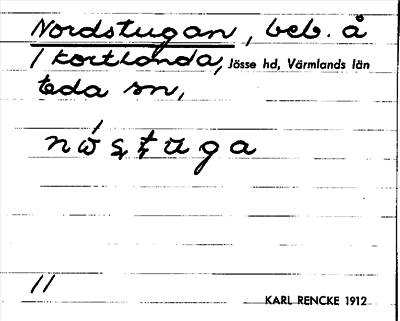 Nordstugan, beb. å
/ Kortlanda, Jösse hd, Värmlands län
Eda sn,
nώʂʈuga
//
KARL RENCKE 1912